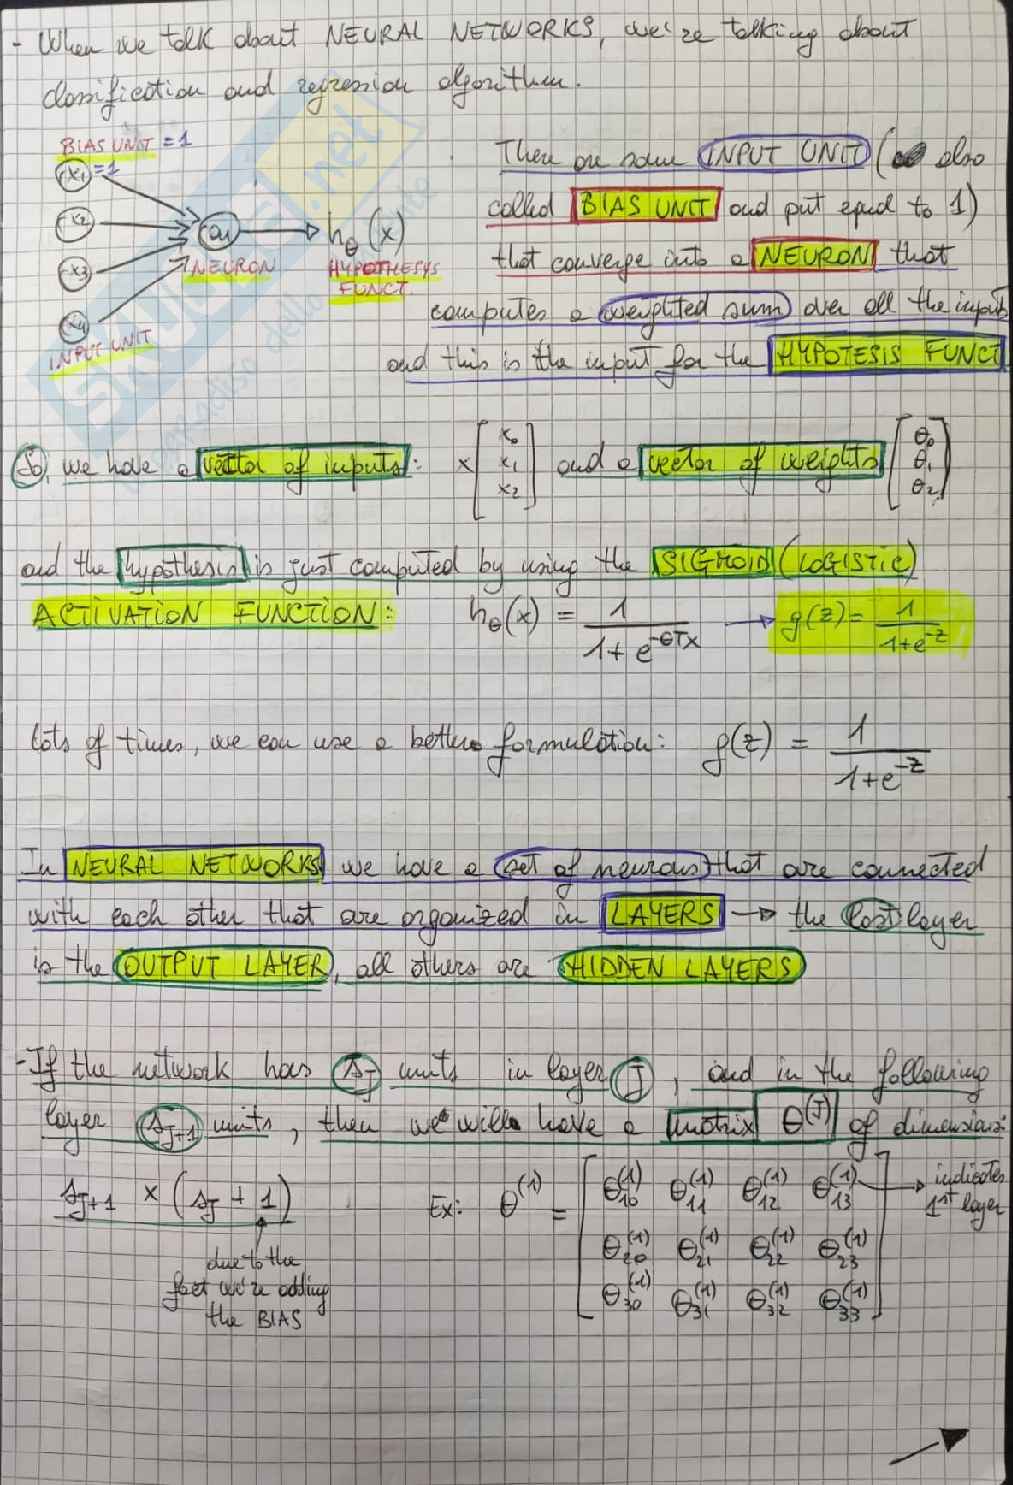 - When we talk about NEURAL NETWORKS, we're talking about
classification and regression algorithm.
BIAS UNIT = 1
x1 = 1
x2
x3
x4
INPUT UNIT
a1
NEURON
hθ(x)
HYPOTHESYS
FUNCT.
There are some INPUT UNIT ( also
called BIAS UNIT and put equal to 1)
that converge into a NEURON that
computes a weighted sum over all the inputs
and this is the input for the HYPOTESIS FUNCT
So, we have a vector of inputs: x [x0 x1 x2] and a vector of weights [θ0 θ1 θ2]
and the hypothesis is just computed by using the SIGMOID (LOGISTIC)
ACTIVATION FUNCTION: hθ(x) = 1 / (1 + e^-θTx) → g(z) = 1 / (1+e^-z)
lots of times, we can use a better formulation: g(z) = 1 / (1+e^-z)
In NEURAL NETWORKS we have a set of neurons that are connected
with each other that are organized in LAYERS → the last layer
is the OUTPUT LAYER, all others are HIDDEN LAYERS
- If the network has sJ units in layer J, and in the following
layer sJ+1 units, then we will have a matrix θ^(J) of dimension:
sJ+1 × (sJ + 1)
due to the
fact we're adding
the BIAS
Ex: θ^(1) =
θ10^(1) θ11^(1) θ12^(1) θ13^(1) → indicates
1st layer
θ20^(1) θ21^(1) θ22^(1) θ23^(1)
θ30^(1) θ31^(1) θ32^(1) θ33^(1)